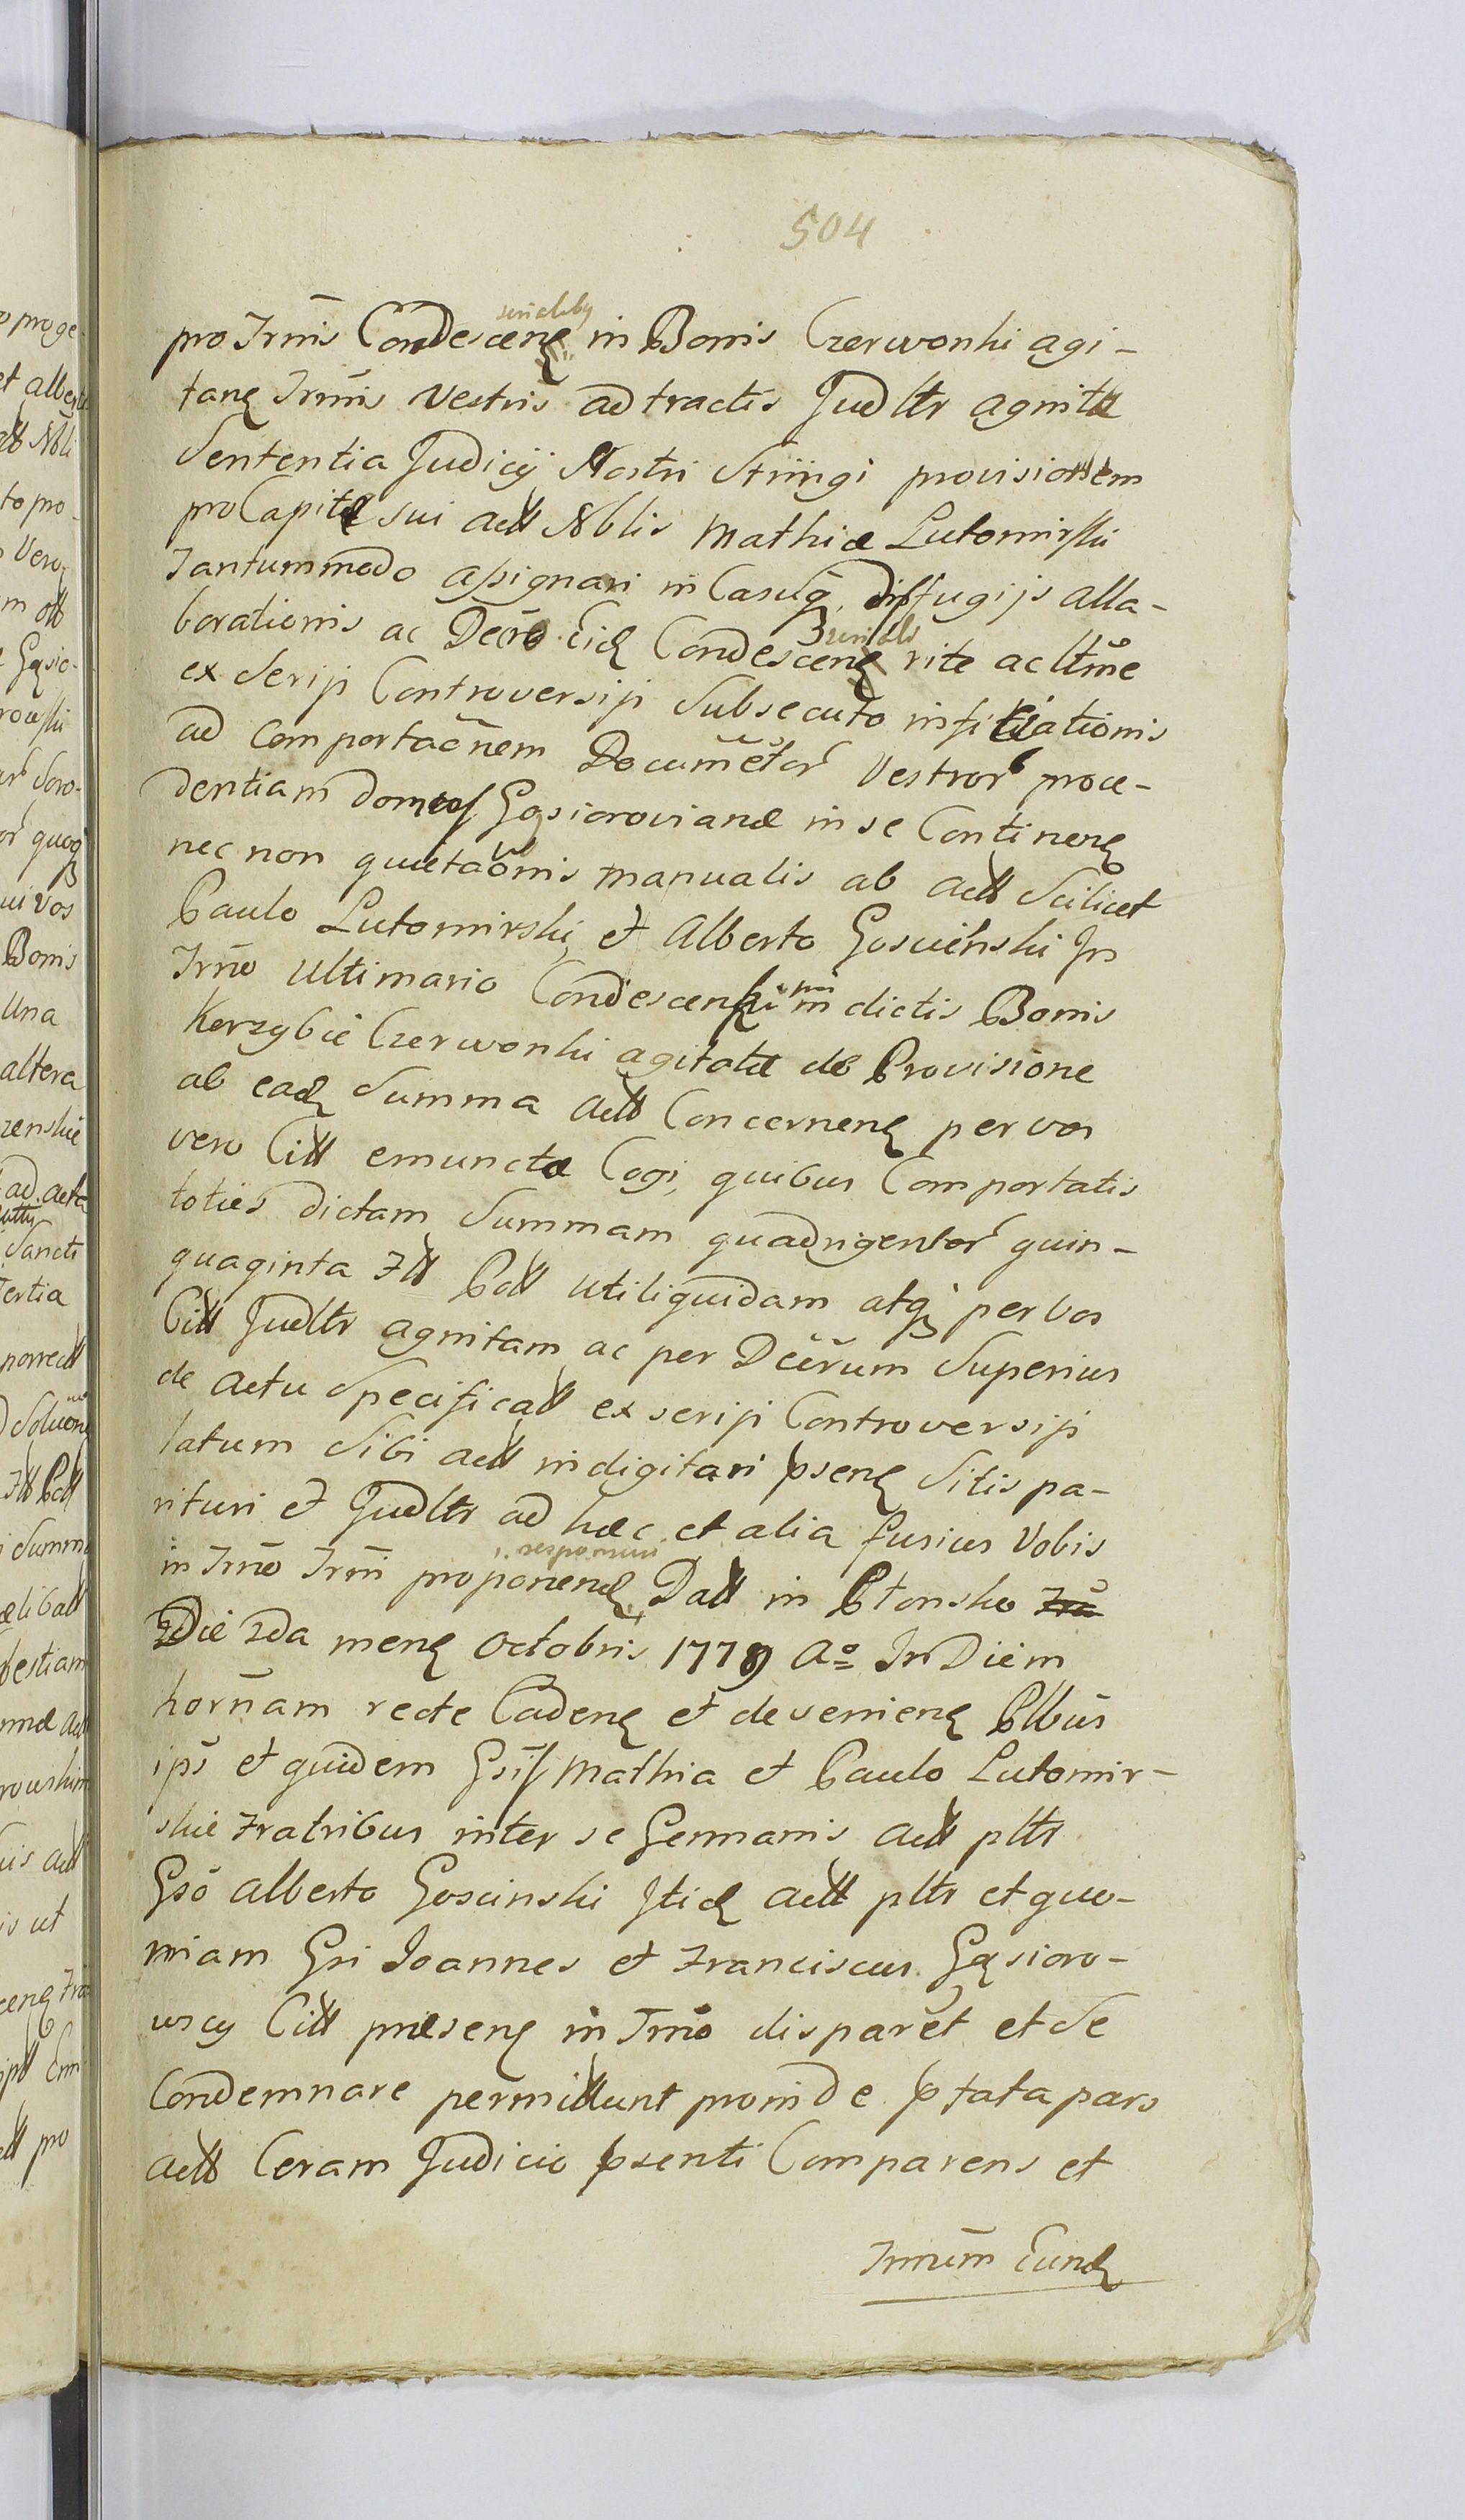 504
pro Trnis Condescenȩ in Bonis Czerwonki agi-
tanȩ Trnis Vestris adtractis Judltr agnita
Sententia Judicij Nostri Stringi provisionem
pro Capite sui actt Nblis Mathiæ Lutomirski
Tantummodo assignari in Casuq diffugijs alla-
borationis ac Decro Eid Condescenȩ rite ac ltme
ex Serijs Controversijs Subsecuto infitiationis
ad Comportacnem Documetor Vestror proce-
dentiam domus Gąsiorovianæ in se Continenȩ
nec non quietaonis manualis ab actt Scilicet
Paulo Lutomirski et Alberto Goscienski In
Trno Ultimario in dictis Bonis
Korzybie Czerwonki agitatæ de Provisione
ab ead Summa actt Concernenȩ per vos
vero Citt emunctæ Cogi, quibus Comportatis
toties dictam Summam quadrigentor quin-
quaginta Ftt Pott uti liquidam atq per vos
Citt Judltr agnitam ac per Dcrum Superius
de actu Specificatt ex serijs Controversijs
latum Sibi actt indigitari psenȩ Sitis pa-
rituri et Judltr ad hæc et alia fusius Vobis
responsuri
in Trno Trni proponend Datt in Płonsko
Die 2da menȩ Octobris 1779 Ao In Diem
hornam recte Cadenȩ et devenienȩ Plbus
ips et quidem Gsis Mathia et Paulo Lutomir-
skie Fratribus inter se Germanis actt pltr
Gso Alberto Goscinski Itid actt pltr et quo-
niam Gsi Joannes et Franciscus Gąsioro-
wscy Citt præsenȩ in Trno disparet et Se
Condemnare permittunt proinde ptata pars
actt Coram Judicio psenti Comparens et
Trnum Eund